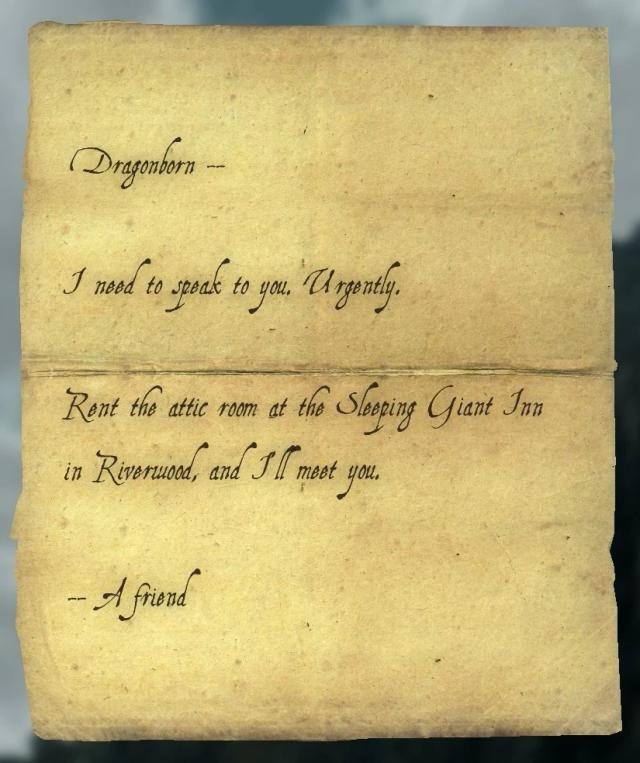 Dragonborn --
I need to speak to you. Urgently.
Rent the attic room at the Sleeping Giant Inn
in Riverwood, and I'll meet you.
-- A friend